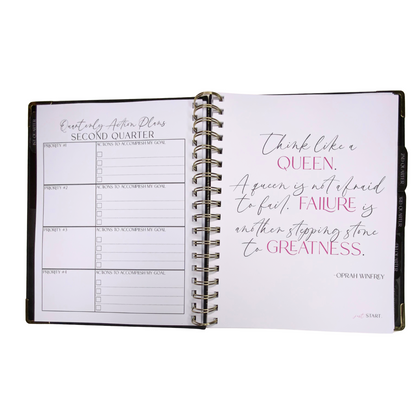 Quarterly Action Plans
SECOND QUARTER
PRIORITY #1
ACTIONS TO ACCOMPLISH MY GOAL
PRIORITY #2
ACTIONS TO ACCOMPLISH MY GOAL
PRIORITY
ACTIONS TO ACCOMPLISH MY GOAL
PRIORITY
ACTIONS TO ACCOMPLISH MY GOAL
Think like a
QUEEN.
A queen is not afraid
to fail. FAILURE is
another stepping stone
to GREATNESS.
OPRAH WINFREY
START